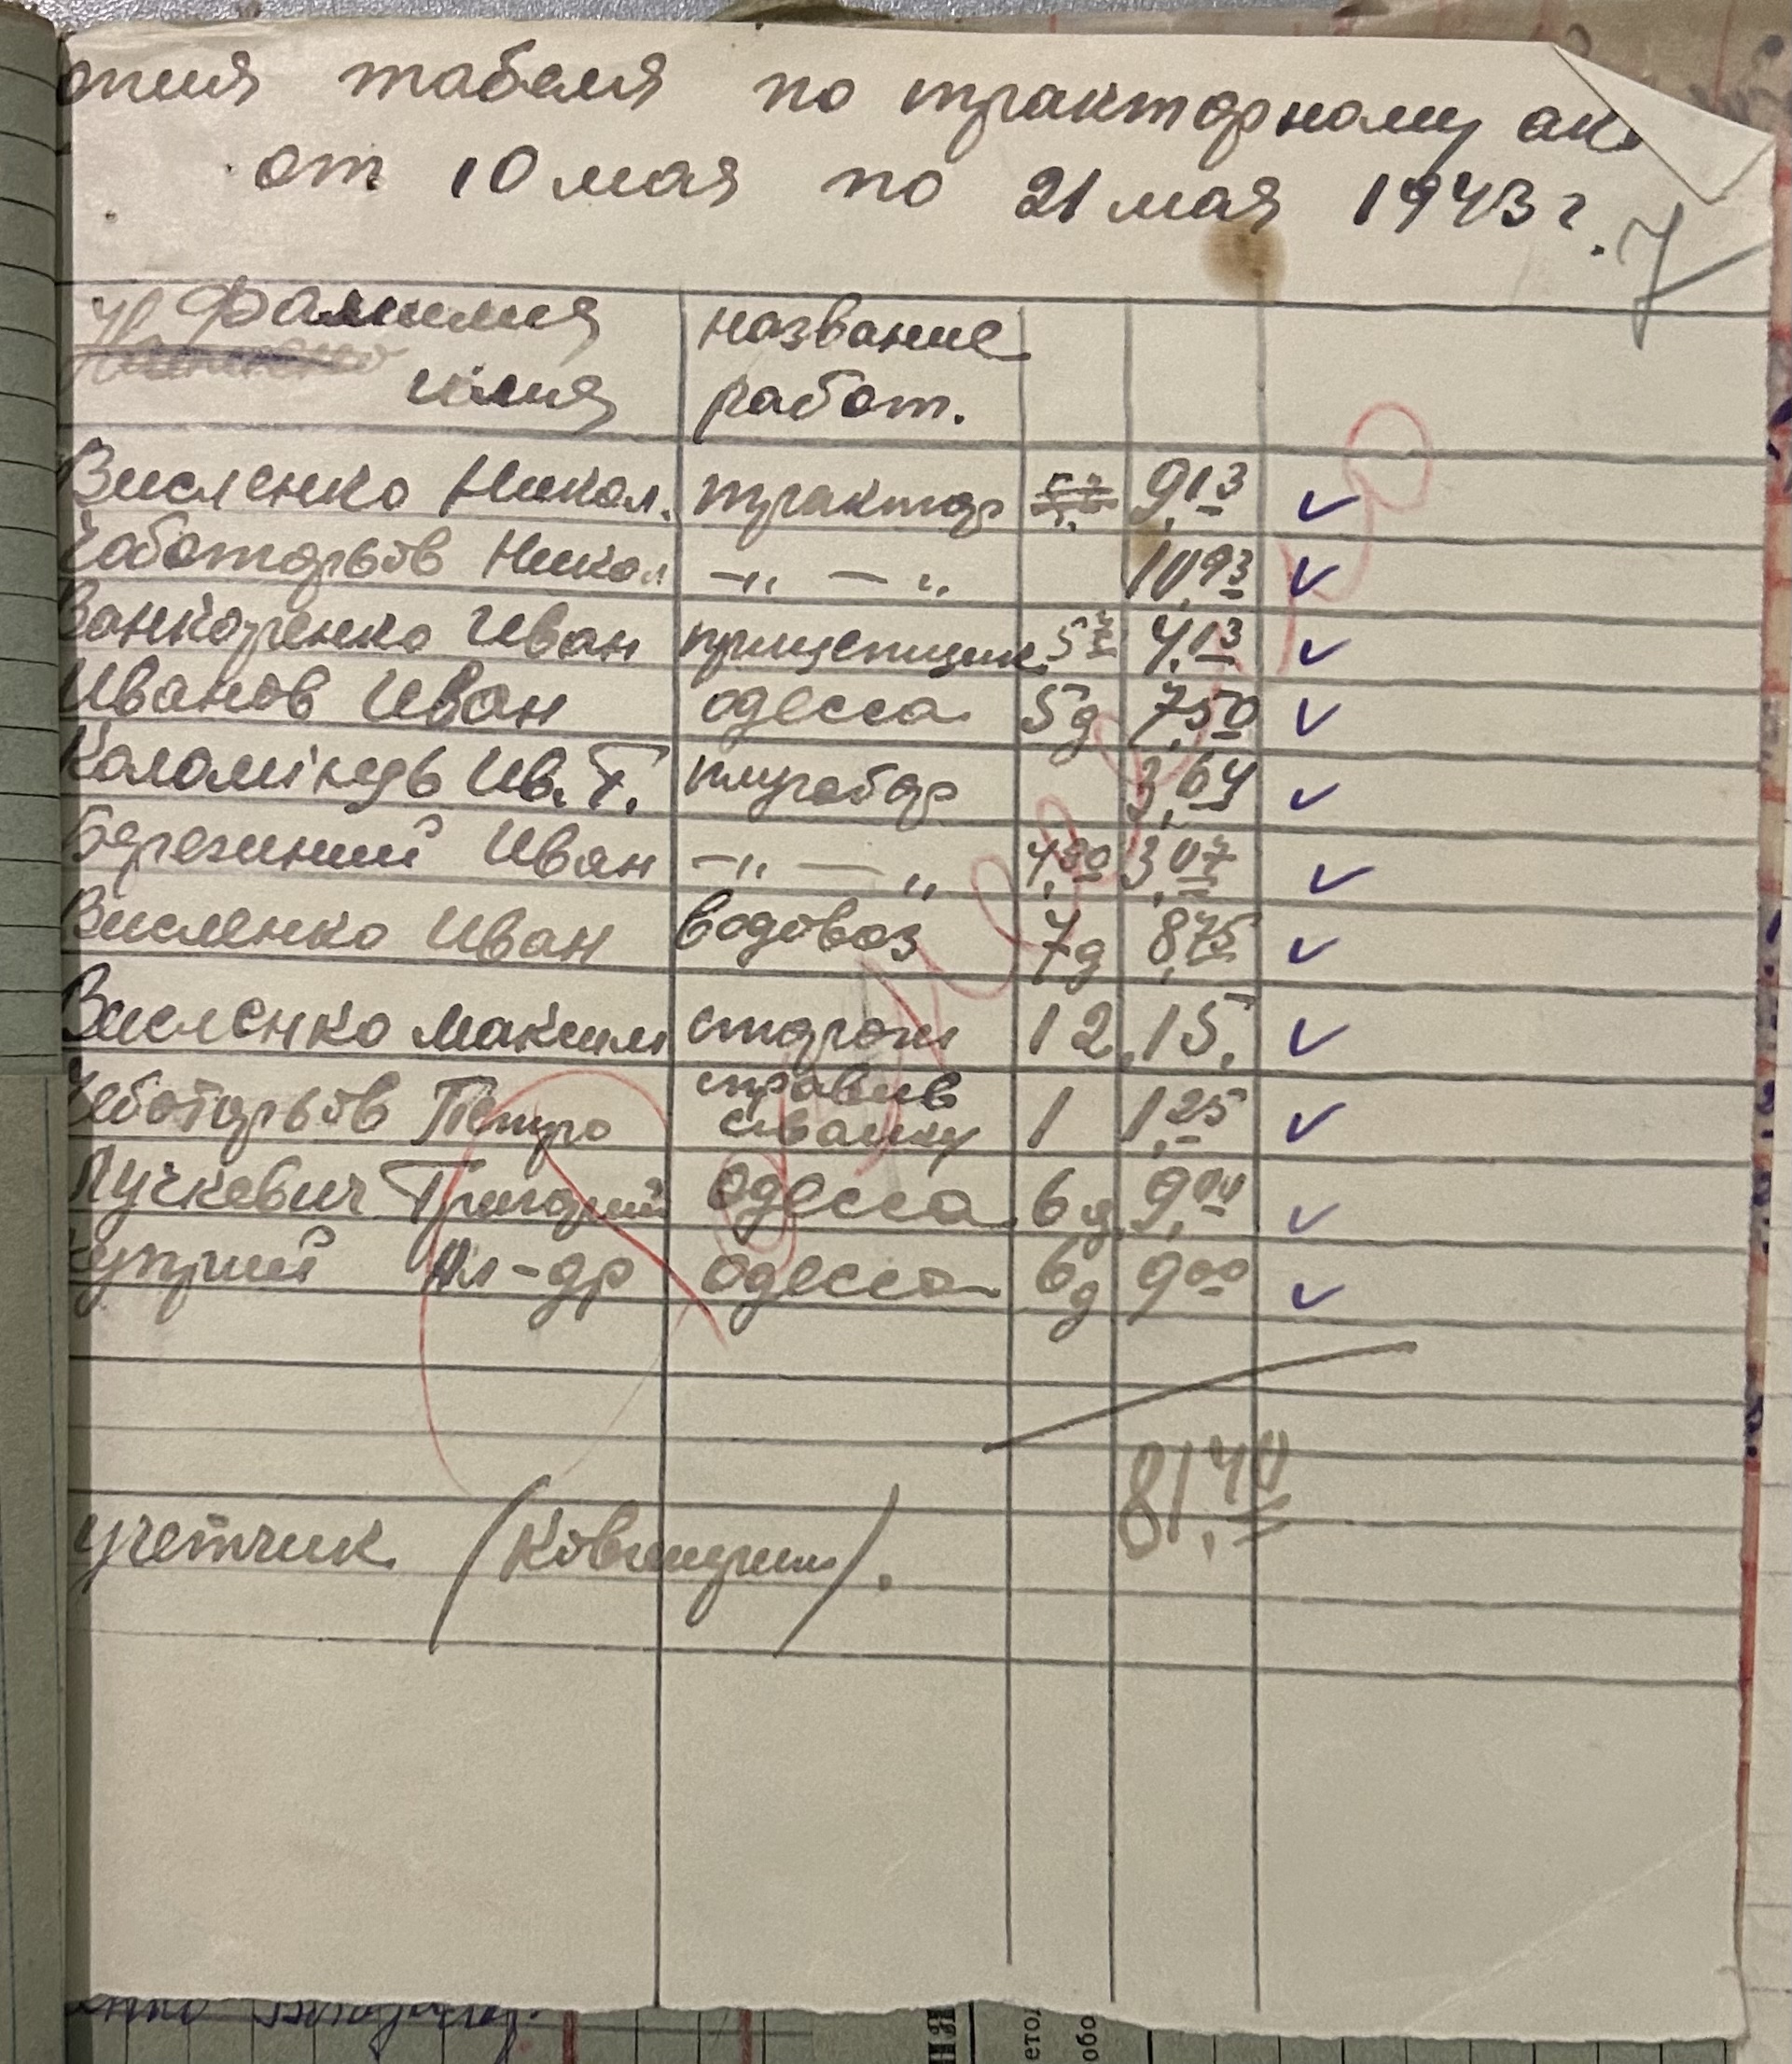 опия табеля по тракторному ак
от 10 мая по 21 мая 1943 г.
7
Фамилия название
имия работ.
Висленко Никол. трактор 9,13
Чоботарьов Никол —„ — „ 10,93
Иван прицепщик. 4,13
Иванов Иван одесса 5д 7,50
Коломіндь Ив. Т. плугатар 3,64
Березиний Иван —„ — „ 4,00 3,07
Висленко Иван водовоз 7д 8,75
Висленко Максим сторож 12 15.
Чеботарьов Петро справив
сівалку 1 1,25
Лучкевич Григорий Одесса 6д 9,00
Куприй Ал-др Одесса 6д 9 00
81,40
учетчик. ( ).